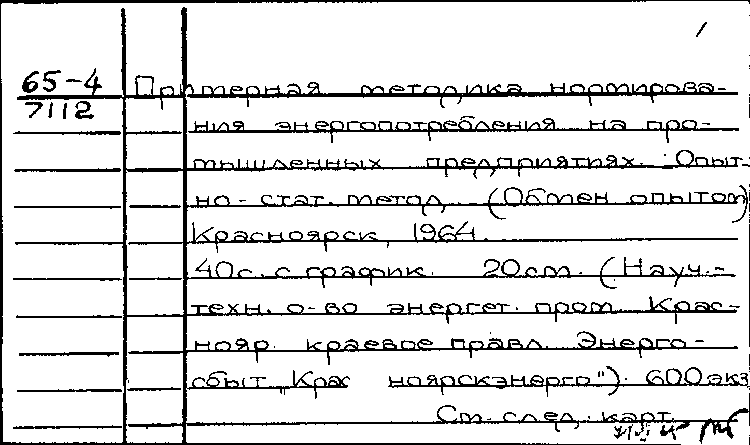 65-4
7112
Примерная методика нормирова-
ния энергопотребления на про-
мышленных предприятиях. Опыт-
но-стат. метод. (Обмен опытом)
Красноярск, 1964.
40с. с график. 20см. (Науч.-
техн. о-во энергет. пром. Крас-
нояр. краевое правл. Энерго-
сбыт „Крас ноярскэнерго"). 600экз
См. след. карт.